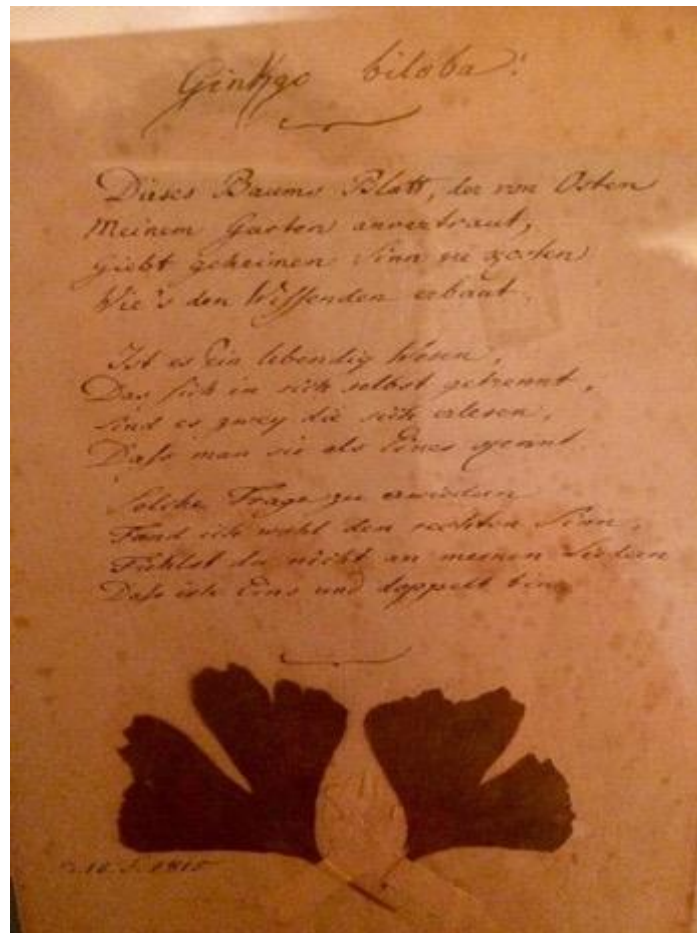 Ginkgo biloba.
Dieses Baums Blatt, der von Osten
Meinem Garten anvertraut,
Giebt geheimen Sinn zu kosten
Wie's den Wissenden erbaut.
Ist es Ein lebendig Wesen,
Das sich in sich selbst getrennt,
Sind es zwey die sich erlesen,
Dass man sie als Eines kennt.
Solche Frage zu erwiedern
Fand ich wohl den rechten Sinn,
Fühlst du nicht an meinen Liedern
Dass ich Eins und doppelt bin.
1815